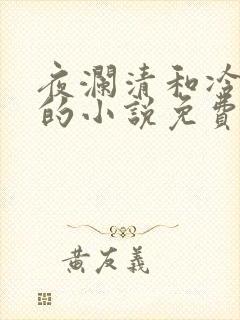 夜瀾清和冷
的小說免費
黃友義